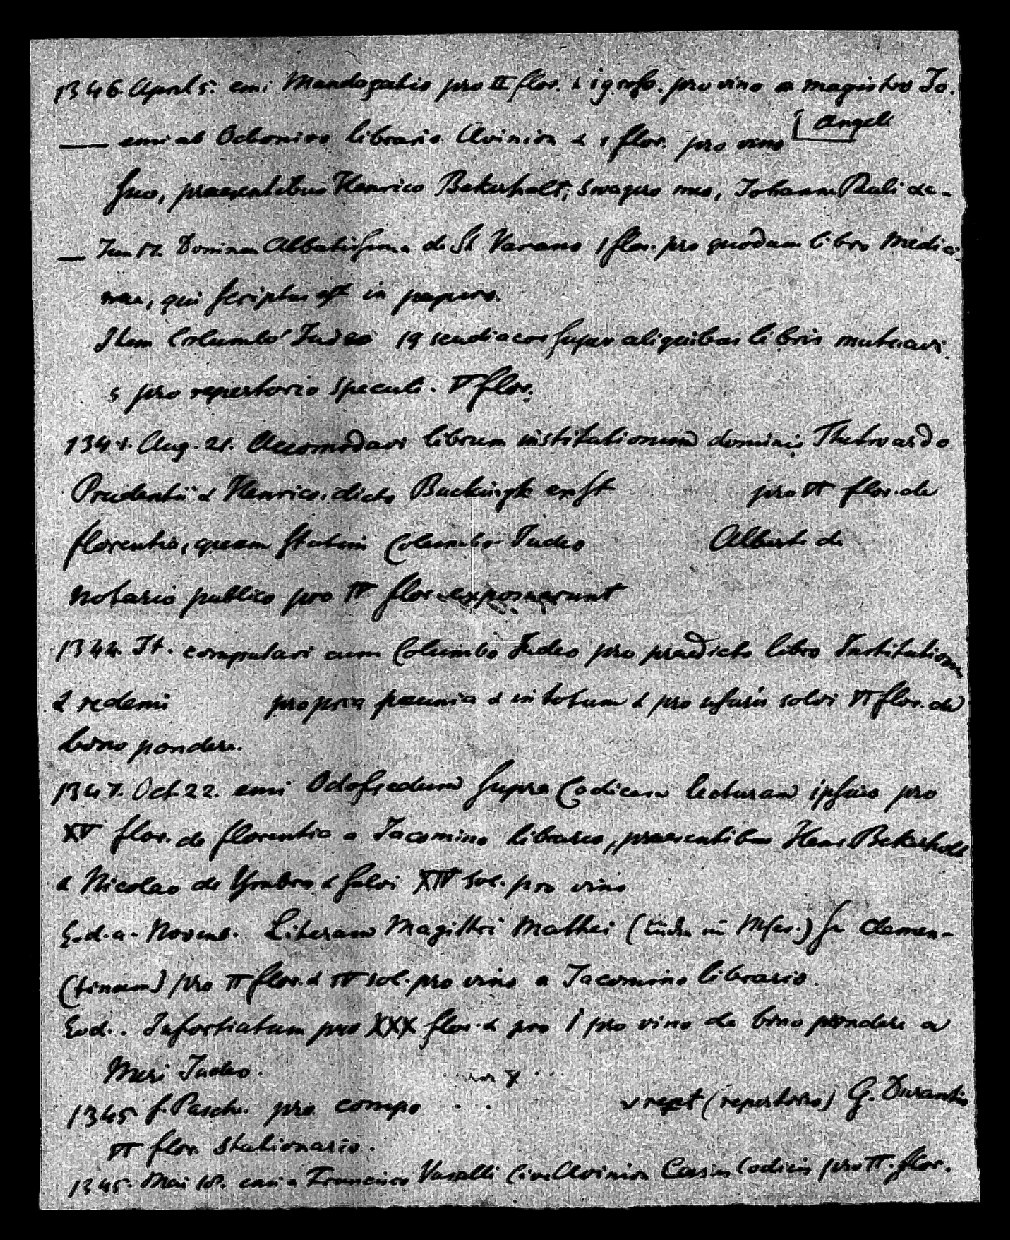 1346. April 5. emi Mandagatio pro II flor. & 1 grosso. pro vino a magistro Jo.
Angeli
— emi ab Octonivo librario Avinion & 1 flor. pro vino
suo, praesentibus Henrico Bekerholt, swagero meo, Johanne Pauli de-
— Jun 17. Dominam Abbatissam de St Varano 1 flor. pro quodam libro Medici-
nae, qui scriptus est in papyro.
Item Columbo Judeo 19 scudiacos super aliquibus libris mutuavi
5 pro repertorio speculi. VI flor.
134. Aug. 21. Accomodavi librum institutionum domini Thetwardo
Prudentii & Henrico dicto Buckingk enst pro VI flor. de
florentia, quem statim Columbo Judeo Albert de
notario publico pro VI flor. exposuerunt
134. It. computavi cum Columbo Judeo pro praedicto libro Institutionum
& redemi propria pecunia & in totum & pro usuris solvi VI flor. de
bono pondere.
1347. Oct. 22. emi Odofredum supra Codicem lecturam ipsius pro
XV flor. de florentia a Jacomino librario, praesentibus Hens Bekerhole
& Nicolao de & solvi XIV sol. pro vino
Eod. a. Novemb. Literam Magistri Mathei (Mscr.) Clemen-
(tinam) pro VI flor. & VI sol. pro vino a Jacomino librario.
Eod. Infortiatum pro XXX flor. & pro 1 pro vino de bono pondere a
Meri Judeo.
1345. f. Pasch. pro compo . . v rept (repertorio) G. Durantis
VI flor. stationario.
1345. Mai 18. emi a Francisco Vasalli Cive Avinion Casus Codicis pro II. flor.